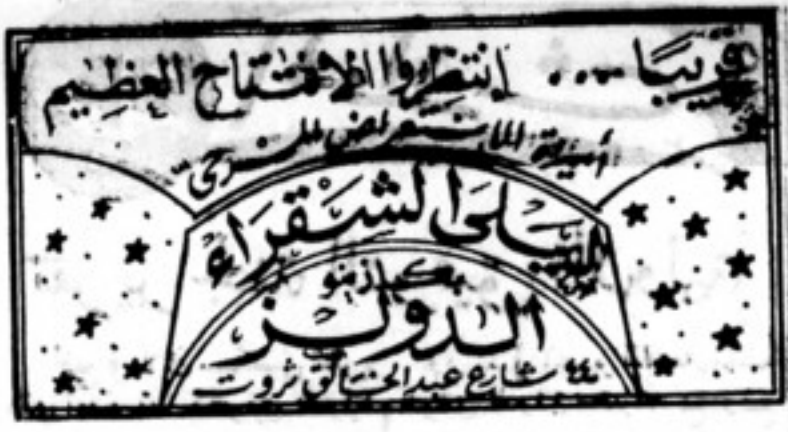 قريبًا ... إنتظروا الافتتاح العظيم
أميرة الاستعراض المسرحى
ليلى الشقراء
بكازينو
الدولز
٤٤ شارع عبد الخالق ثروت